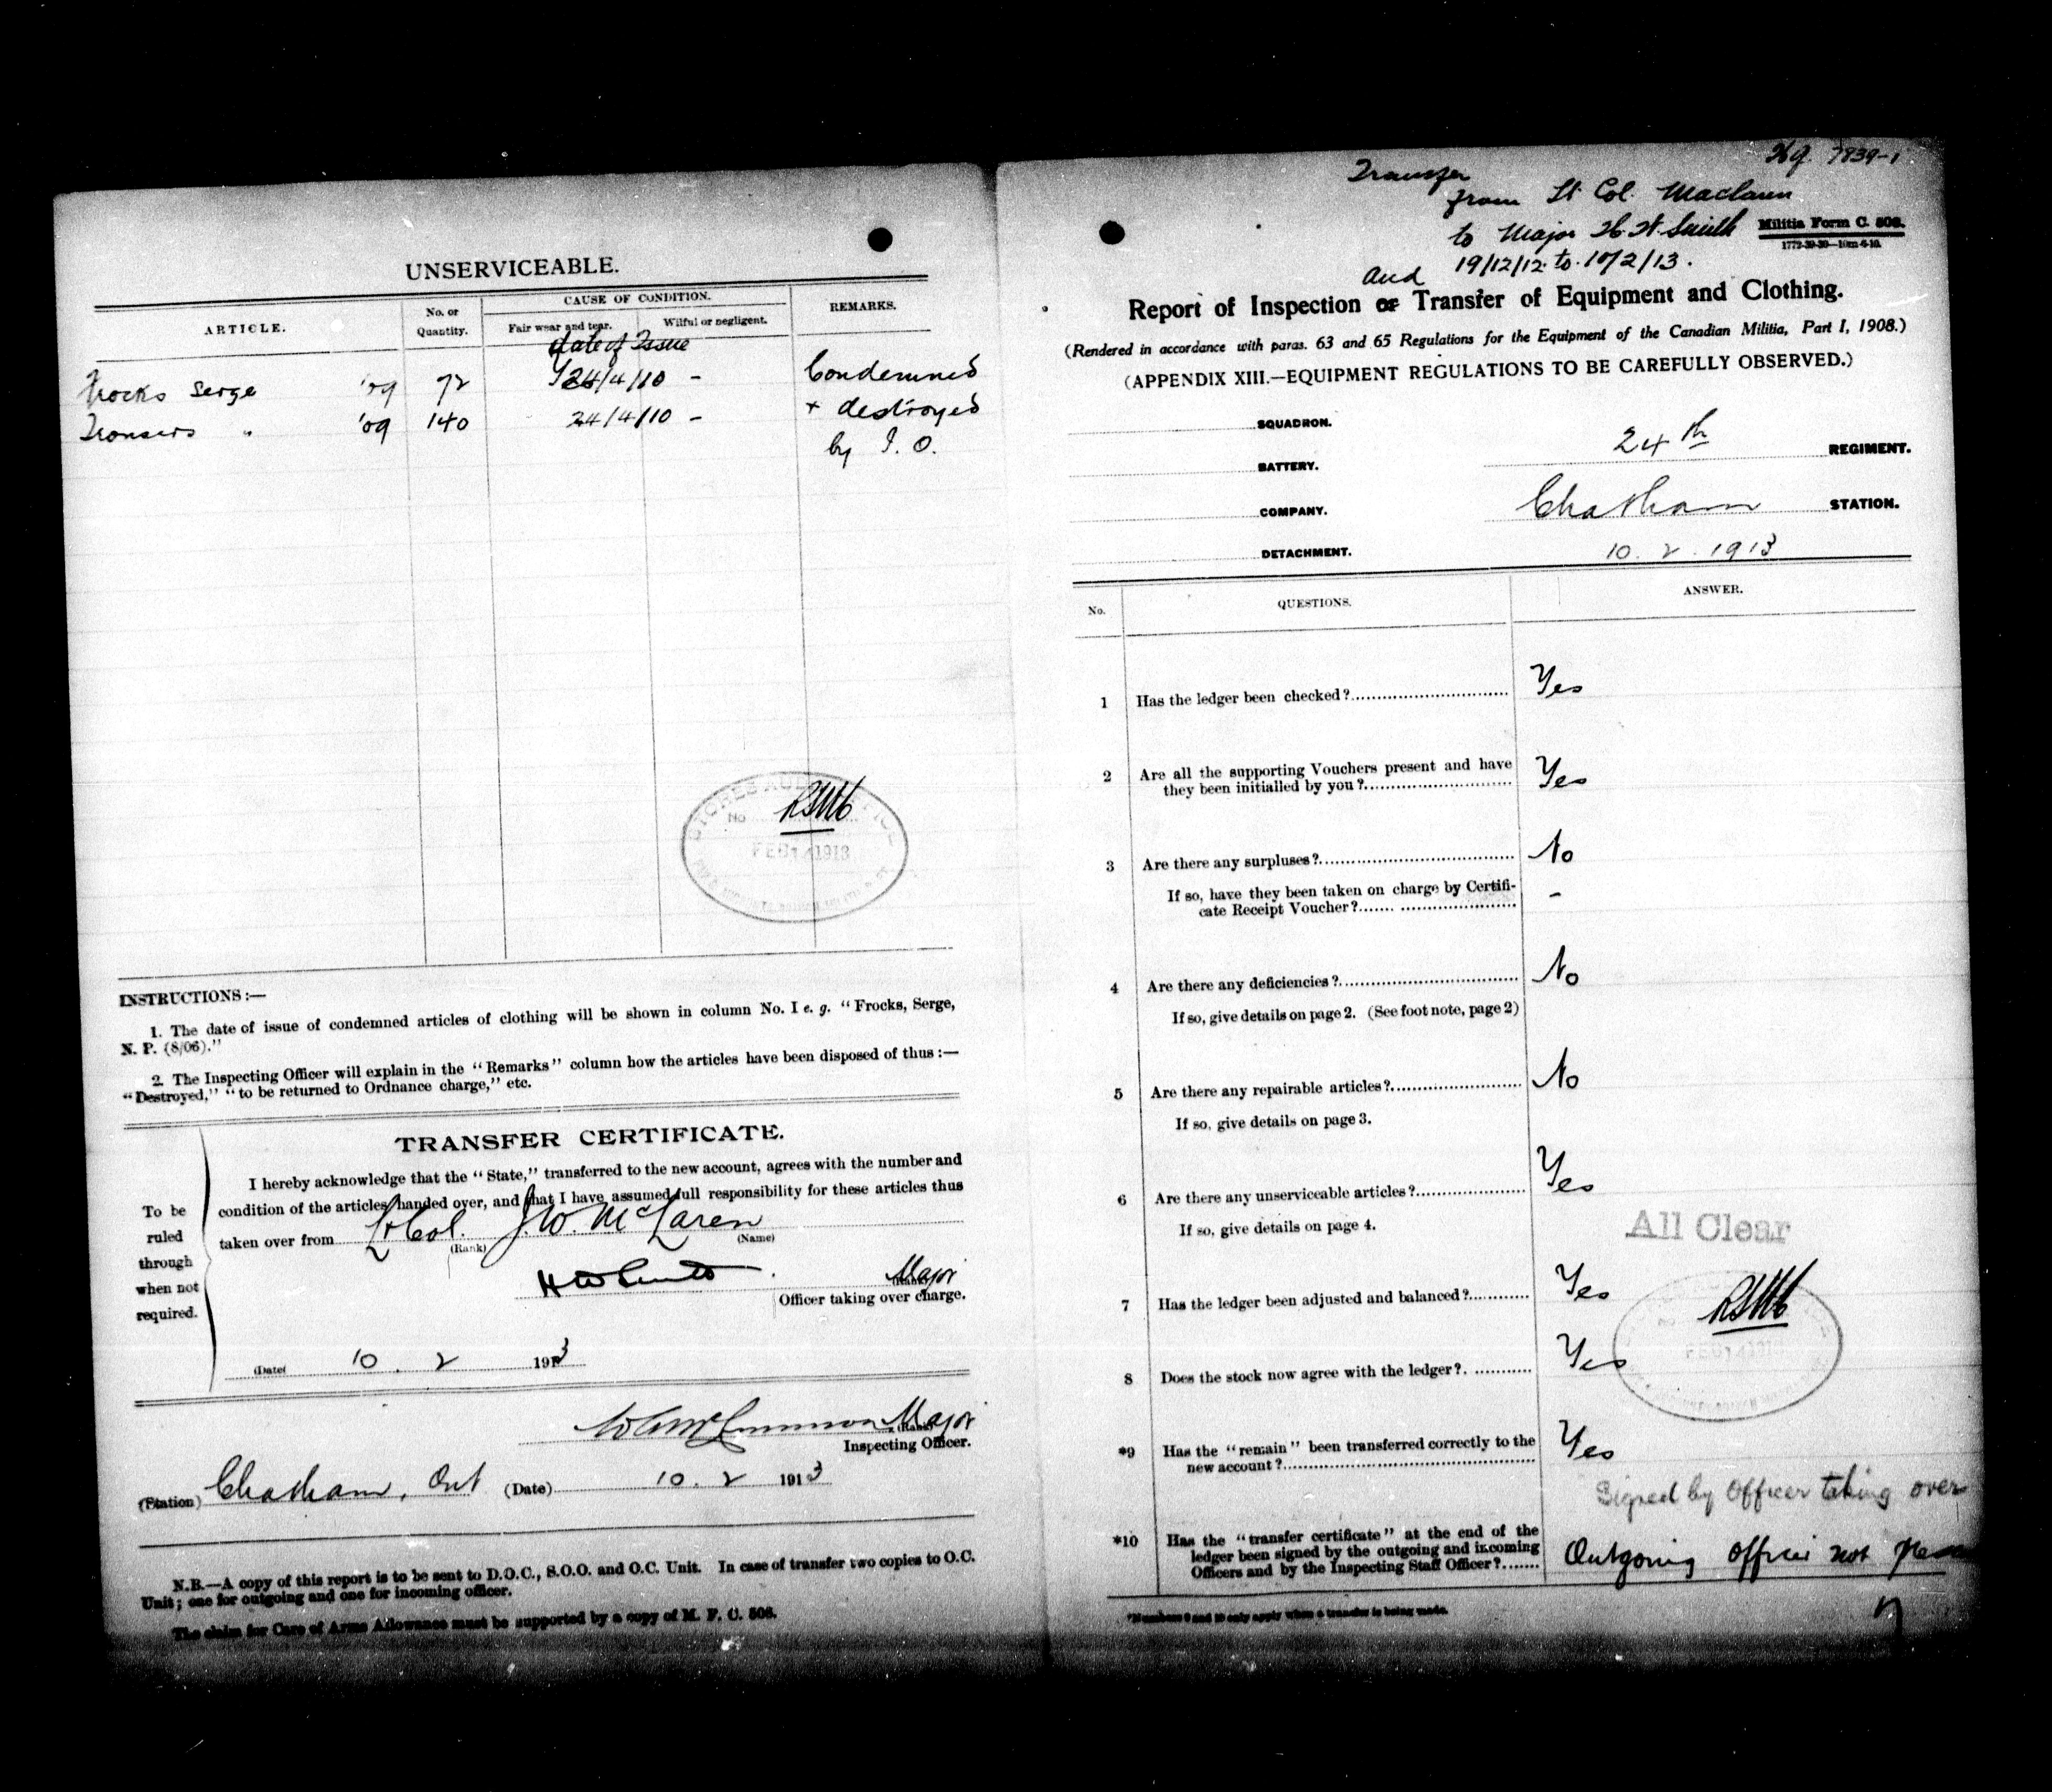 UNSERVICEABLE.
ARTICLE.
No. or Quantity.
CAUSE OF CONDITION.
Fair wear and tear.
Wilful or negligent.
REMARKS.
date of Issue
Frocks Serge '09 72 24/4/10 - Condemned
Trousers " '09 140 24/4/10 - + destroyed
by I. O.
No
FEB 14 1913
INSTRUCTIONS :—
1. The date of issue of condemned articles of clothing will be shown in column No. I e. g. "Frocks, Serge,
N. P. (8/06)."
2. The Inspecting Officer will explain in the "Remarks" column how the articles have been disposed of thus :—
"Destroyed," "to be returned to Ordnance charge," etc.
TRANSFER CERTIFICATE.
To be
ruled
through
when not
required.
I hereby acknowledge that the "State," transferred to the new account, agrees with the number and
condition of the articles handed over, and that I have assumed full responsibility for these articles thus
taken over from Lt Col. J. W. McLaren
(Rank) (Name)
Major
(Rank)
Officer taking over charge.
(Date( 10. 2 1913
Major
(Rank)
Inspecting Officer.
(Station) Chatham, Ont (Date) 10. 2 1913
N.B.—A copy of this report is to be sent to D.O.C., S.O.O. and O.C. Unit. In case of transfer two copies to O.C.
Unit; one for outgoing and one for incoming officer.
The claim for Care of Arms Allowance must be supported by a copy of M. F. C. 508.
Hq. 7939-1
Transfer
from Lt Col. Maclaren
to Major H. W. Smith
19/12/12 to 10/2/13.
Militia Form C. 508.
1772-39-30—10m-6-10.
and
Report of Inspection or Transfer of Equipment and Clothing.
(Rendered in accordance with paras. 63 and 65 Regulations for the Equipment of the Canadian Militia, Part I, 1908.)
(APPENDIX XIII.—EQUIPMENT REGULATIONS TO BE CAREFULLY OBSERVED.)
SQUADRON.
24th REGIMENT.
BATTERY.
Chatham STATION.
COMPANY.
DETACHMENT.
10. 2. 1913
No.
QUESTIONS.
ANSWER.
1 Has the ledger been checked? Yes
2 Are all the supporting Vouchers present and have
they been initialled by you? Yes
3 Are there any surpluses? No
If so, have they been taken on charge by Certifi-
cate Receipt Voucher? -
4 Are there any deficiencies? No
If so, give details on page 2. (See foot note, page 2)
5 Are there any repairable articles? No
If so, give details on page 3.
6 Are there any unserviceable articles? Yes
If so, give details on page 4.
All Clear
7 Has the ledger been adjusted and balanced? Yes
FEB 14 191
8 Does the stock now agree with the ledger? Yes
*9 Has the "remain" been transferred correctly to the
new account? Yes
Signed by Officer taking over
*10 Has the "transfer certificate" at the end of the
ledger been signed by the outgoing and incoming
Officers and by the Inspecting Staff Officer? Outgoing Officer not
*Numbers 9 and 10 only apply when a transfer is being made.